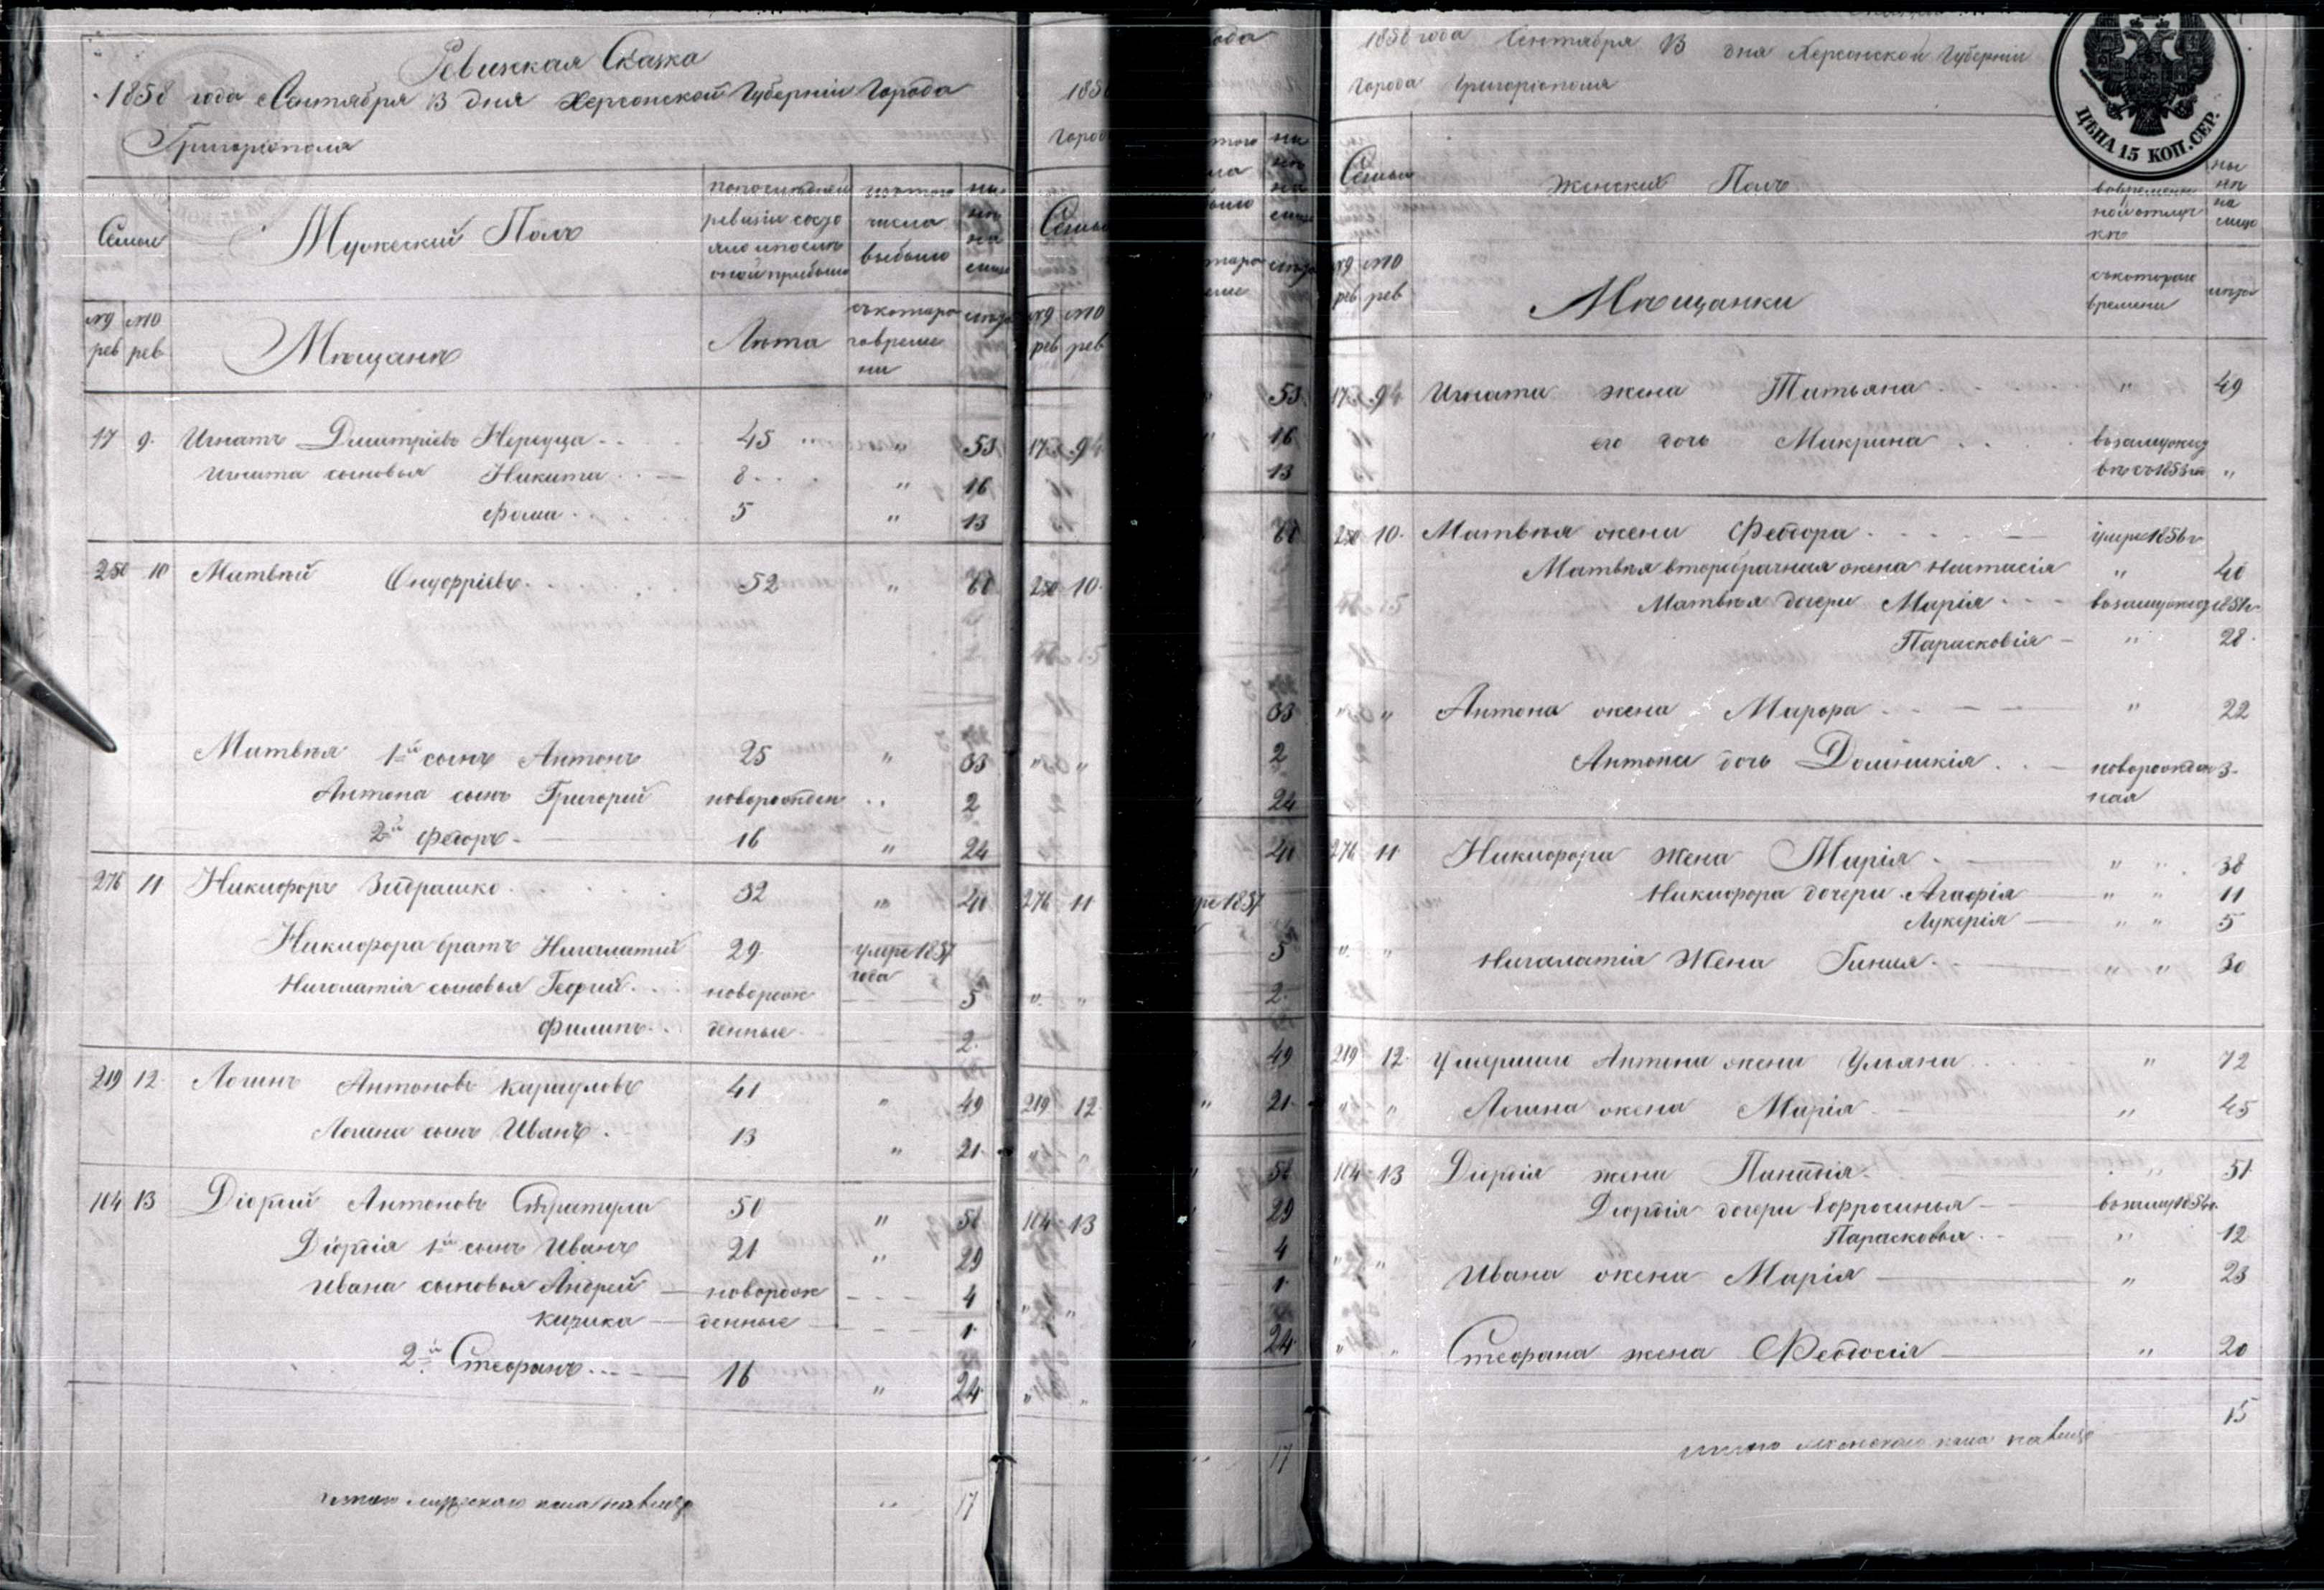 Ревизкая Сказка
1858 года Сентября 13 дня Херсонской Губерніи Города
Григоріополя
Семьи
Мужеский Полъ
по последней ревизіи состояло и после оной прибыло
изъ того числа выбыло
ныне на лицо
№ 9 рев
№ 10 рев
Мещанъ
Лета
съ котораго времени
лета
17 9. Игнатъ Дмитріевъ Нередуца 45 " 53
Игната сыновья Никита 8 " 16
Фома 5 " 13
250 10 Матвей Онуфріевъ 52 " 60
Матвея 1й сынъ Антонъ 25 " 33
Антона сынъ Григорий новорожден 2
2й Федоръ 16 " 24
276 11 Никифоръ Задрашко 32 " 40
Никифора братъ Нигалатий 29 умре 1857 года
Нигалатія сыновья Георгий новорож 5
Филипъ денные 2
219 12 Логинъ Антоновъ Карауловъ 41 " 49
Логина сынъ Иванъ 13 " 21
104 13 Діордий Антоновъ Стратула 50 " 58
Діордія 1й сынъ Иванъ 21 " 29
Ивана сыновья Андрей новорож 4
Кирика денные 1
2й Стефанъ 16 " 24
итого мужескаго пола на лицо " 17
1858 года Сентября 13 дня Херсонской Губерніи
Города Григоріополя
ЦѢНА 15 КОП. СЕР.
Семьи
Женский Полъ
во временной отлучке
ныне на лицо
№ 9 рев
№ 10 рев
Мещанки
съ котораго времени
лета
Игната жена Татьяна " 49
его дочь Макрина
250 10. Матвея жена Федора умре 1856 г
Матвея второбрачная жена Настасія " 40
Матвея дочери Марія
Парасковія " 28
" " Антона жена Марфа " 22
Антона дочь Домникія новорожденная 3
276 11 Никифора жена Марія " " 38
Никифора дочери Агафія " " 11
Лукерія " " 5
" " Нигалатія Жена Гинія " " 30
219 12 Умершаго Антона жена Ульяна " 72
" " Логина жена Марія " 45
104 13 Діордія жена Панадія " 51
Діордія дочери Ефросинья
Парасковья " 12
" " Ивана жена Марія " 23
" " Стефана жена Федосія " 20
15
итого женскаго пола на лицо